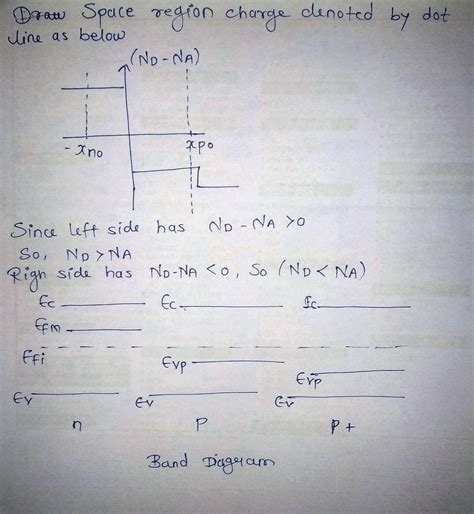 ① Draw Space region charge denoted by dot
line as below
(ND - NA)
- xno
xpo
Since left side has ND - NA >0
So, ND > NA
Righ side has ND-NA < 0, So (ND < NA)
Ec Ec Ec
Efm
Efi Evp
Evp
Ev Ev Ev
n P P+
Band Diagram